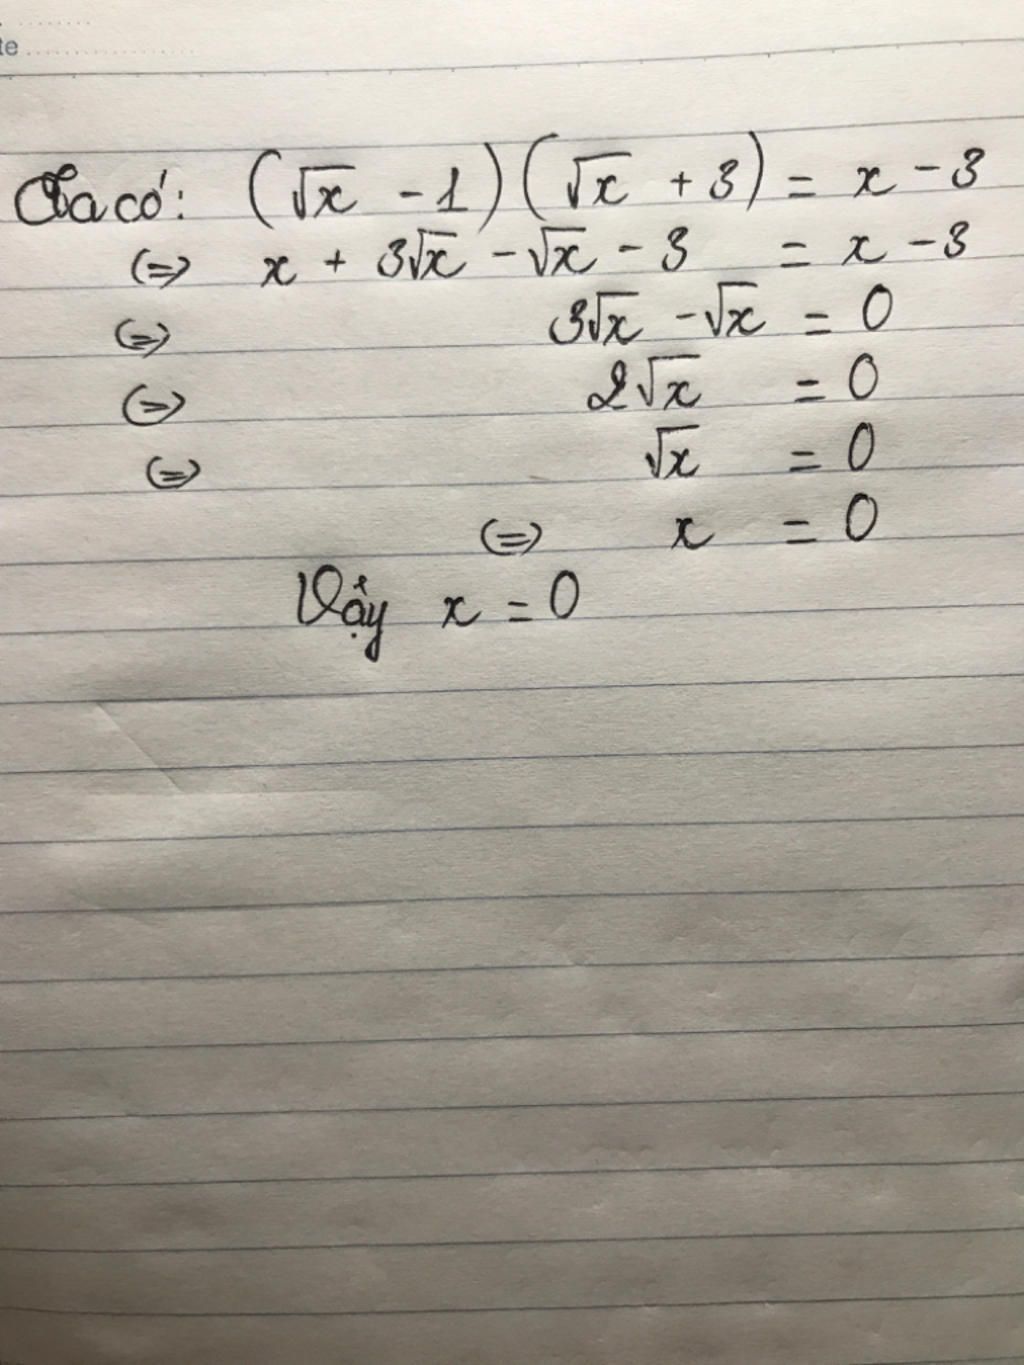 te
Ta có: (√x - 1)(√x + 3) = x - 3
(=) x + 3√x - √x - 3 = x - 3
(=) 3√x - √x = 0
(=) 2√x = 0
(=) √x = 0
(=) x = 0
Vậy x = 0